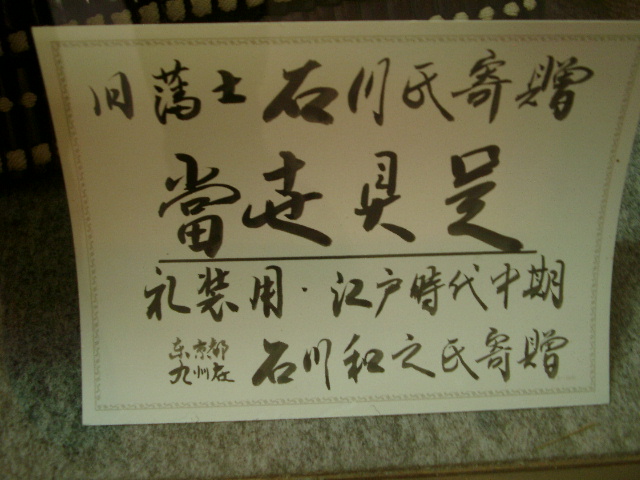 旧藩士石川氏寄贈
當世具足
礼装用・江戸時代中期
東京都
石川和之氏寄贈